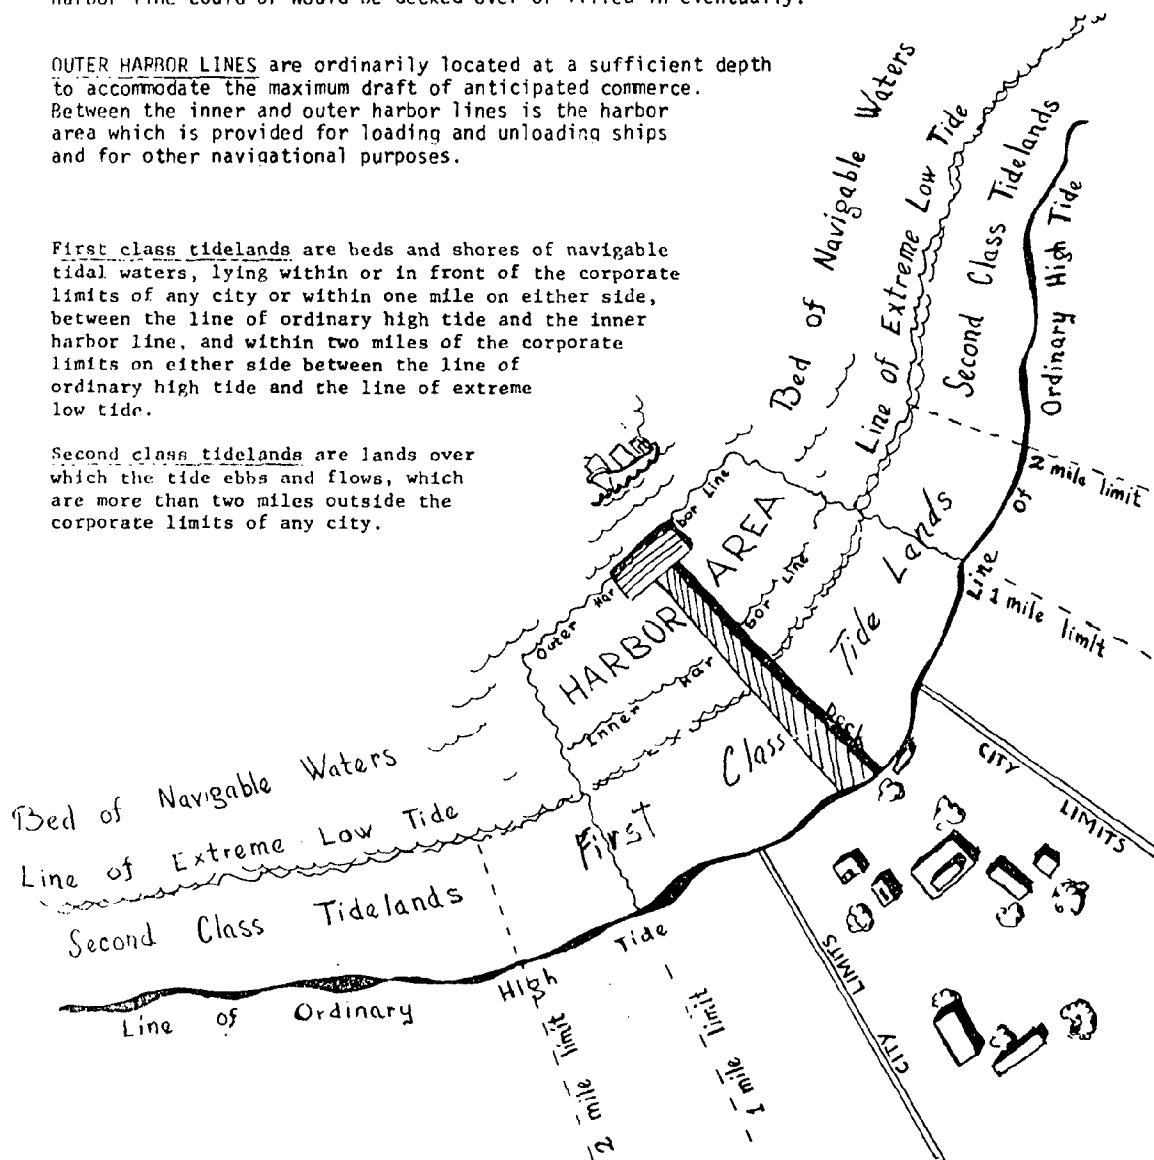 harbor line could or would be decked over or filled in eventually.
OUTER HARBOR LINES are ordinarily located at a sufficient depth
to accommodate the maximum draft of anticipated commerce.
Between the inner and outer harbor lines is the harbor
area which is provided for loading and unloading ships
and for other navigational purposes.
First class tidelands are beds and shores of navigable
tidal waters, lying within or in front of the corporate
limits of any city or within one mile on either side,
between the line of ordinary high tide and the inner
harbor line, and within two miles of the corporate
limits on either side between the line of
ordinary high tide and the line of extreme
low tide.
Second class tidelands are lands over
which the tide ebbs and flows, which
are more than two miles outside the
corporate limits of any city.
Bed of Navigable Waters
Line of Extreme Low Tide
Second Class Tidelands
Line of Ordinary High Tide
2 mile limit
1 mile limit
Outer Harbor Line
HARBOR AREA
Inner Harbor Line
First Class Tide Lands
Dock
CITY LIMITS
Bed of Navigable Waters
Line of Extreme Low Tide
Second Class Tidelands
Line of Ordinary High Tide
2 mile limit
1 mile limit
CITY LIMITS